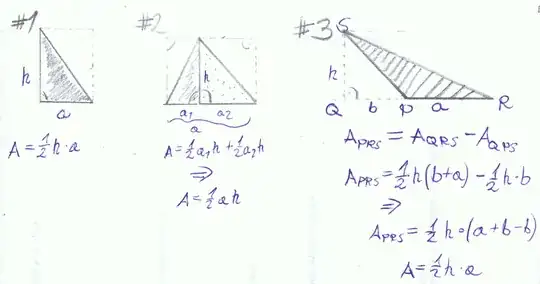 #1
h
a
A = 1/2 h · a
#2
h
a₁ a₂
a
A = 1/2 a₁h + 1/2 a₂h
⇒
A = 1/2 a h
#3
S
h
Q b P a R
A_PRS = A_QRS − A_QPS
A_PRS = 1/2 h(b+a) − 1/2 h · b
⇒
A_PRS = 1/2 h · (a+b−b)
A = 1/2 h · a